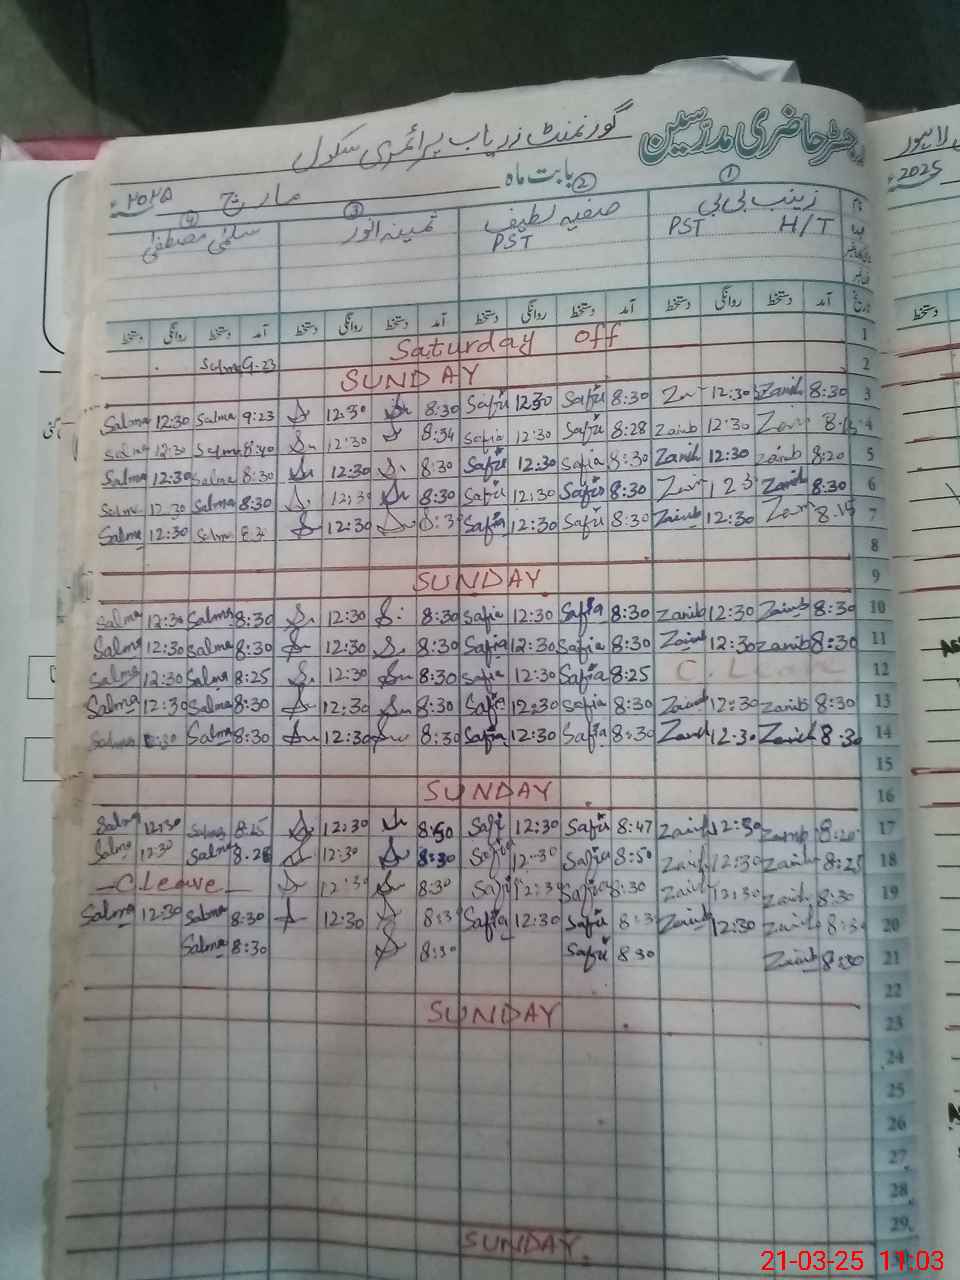 رجسٹر حاضری مدرسین گورنمنٹ زریاب پرائمری سکول
بابت ماہ مارچ ۲۰۲۵ء
① ② ③ ④
زینب بی بی صفیہ لطیف ثمینہ انور سلمیٰ مصطفیٰ
H/T PST PST
تاریخ آمد دستخط روانگی دستخط آمد دستخط روانگی دستخط آمد دستخط روانگی دستخط آمد دستخط روانگی دستخط
Saturday off 1
Salma 9-23 2
SUNDAY
Salma 12:30 Salma 9:23 12:30 8:30 Safia 12:30 Safia 8:30 12:30 Zainb 8:30 3
Salma 12:30 Salma 8:30 12:30 8:34 Safia 12:30 Safia 8:28 Zainb 12:30 4
Salma 12:30 Salma 8:30 12:30 8:30 Safia 12:30 Safia 8:30 Zainb 12:30 Zainb 8:20 5
Salma 12:30 Salma 8:30 12:30 8:30 Safia 12:30 Safia 8:30 Zainb 8:30 6
Salma 12:30 Salma 12:30 Safia 12:30 Safia 8:30 Zainb 12:30 8:15 7
8
SUNDAY 9
Salma 12:30 Salma 8:30 12:30 8:30 Safia 12:30 Safia 8:30 Zainb 12:30 Zainb 8:30 10
Salma 12:30 Salma 8:30 12:30 8:30 Safia 12:30 Safia 8:30 Zainb 12:30 Zainb 8:30 11
Salma 12:30 Salma 8:25 12:30 8:30 Safia 12:30 Safia 8:25 C. Leave 12
Salma 12:30 Salma 8:30 12:30 8:30 Safia 12:30 Safia 8:30 Zainb 12:30 Zainb 8:30 13
Salma Salma 8:30 12:30 8:30 Safia 12:30 Safia 8:30 Zainb 12:30 Zainb 8:30 14
15
SUNDAY 16
Salma 12:30 Salma 8:25 12:30 Safia 12:30 Safia 8:47 Zainb 12:30 Zainb 8:20 17
Salma 12:30 Salma 12:30 8:30 Safia 12:30 Safia 8:50 Zainb 12:30 Zainb 8:25 18
C. Leave 12:30 8:30 Safia 12:30 Safia 8:30 Zainb 12:30 Zainb 8:30 19
Salma 12:30 Salma 8:30 12:30 Safia 12:30 Safia Zainb 12:30 Zainb 20
Salma 8:30 8:30 Safia 8:30 Zainb 8:30 21
22
SUNDAY 23
24
25
26
27
28
29
SUNDAY
لاہور
2025
دستخط
21-03-25 11:03